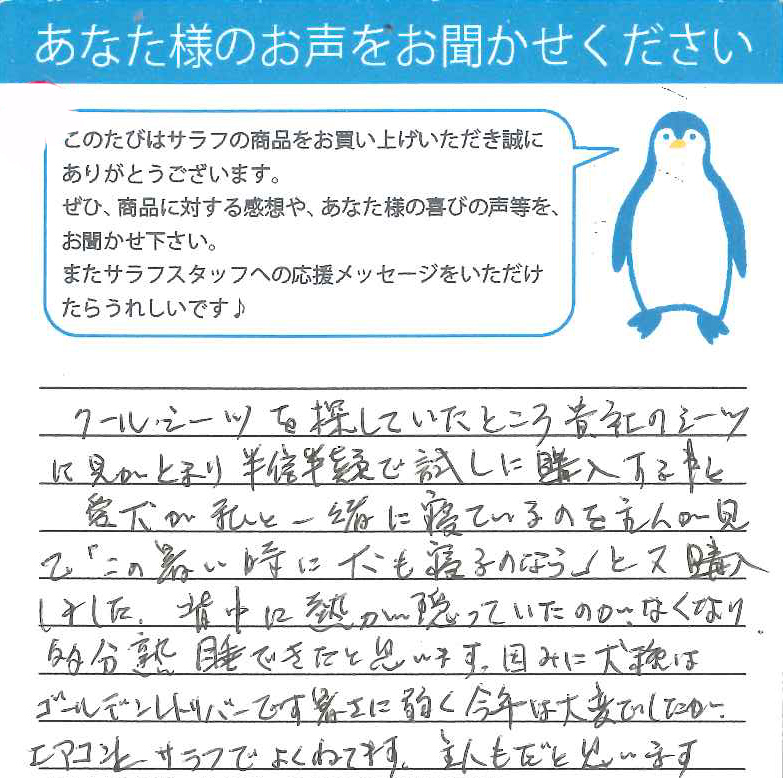 あなた様のお声をお聞かせください
このたびはサラフの商品をお買い上げいただき誠に
ありがとうございます。
ぜひ、商品に対する感想や、あなた様の喜びの声等を、
お聞かせ下さい。
またサラフスタッフへの応援メッセージをいただけ
たらうれしいです♪
クールシーツを探していたところ貴社のシーツ
に見がとまり半信半疑で試しに購入する事と
愛犬が私と一緒に寝ているのを主人が見
て「この暑い時に犬も寝るのぼう」と又購入
しました。背中に熱が隠っていたのが、なくなり
多分熟睡できたと思います。因みに犬種は
ゴールデンレトリバーです暑さに弱く今年は大変でしたが、
エアコンとサラフでよくねてます。主人もだと思います